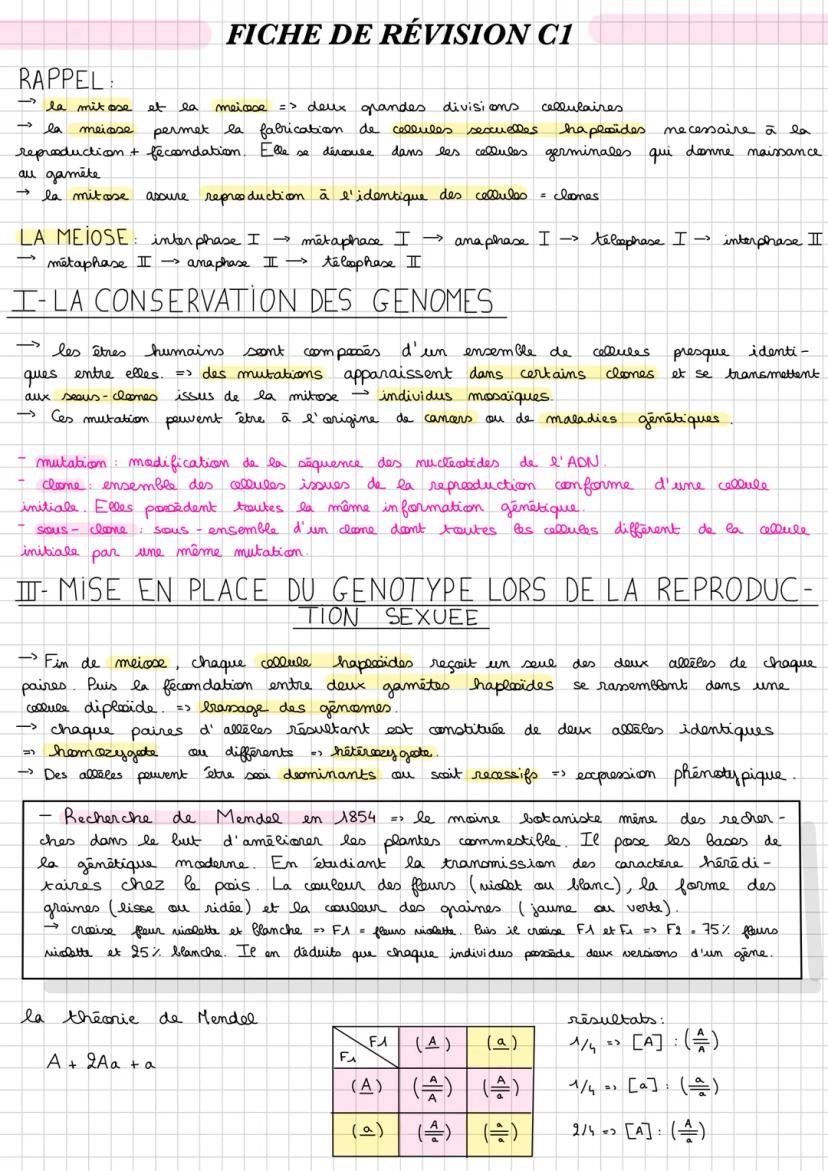 FICHE DE RÉVISION C1
RAPPEL :
→ la mitose et la meiose => deux grandes divisions cellulaires
→ la meiose permet la fabrication de cellules sexuelles haploïdes necessaire à la
reproduction + fécondation. Elle se déroule dans les cellules germinales qui donne naissance
au gamète
→ la mitose assure reproduction à l'identique des cellules = clones
LA MEIOSE : interphase I → métaphase I → anaphase I → télophase I → interphase II
→ métaphase II → anaphase II → télophase II
I- LA CONSERVATION DES GENOMES
→ les êtres humains sont composés d'un ensemble de cellules presque identi-
ques entre elles. => des mutations apparaissent dans certains clones et se transmettent
aux sous-clones issus de la mitose → individus mosaïques.
→ Ces mutation peuvent être à l'origine de cancers ou de maladies génétiques.
- mutation : modification de la séquence des nucléotides de l'ADN.
- clone : ensemble des cellules issues de la reproduction conforme d'une cellule
initiale. Elles possèdent toutes la même information génétique.
- sous-clone : sous-ensemble d'un clone dont toutes les cellules diffèrent de la cellule
initiale par une même mutation.
III- MISE EN PLACE DU GENOTYPE LORS DE LA REPRODUC-
TION SEXUEE
→ Fin de meiose, chaque cellule haploïdes reçoit un seul des deux allèles de chaque
paires. Puis la fécondation entre deux gamètes haploïdes se rassemblent dans une
cellule diploïde. => brassage des génomes.
→ chaque paires d'allèles résultant est constituée de deux allèles identiques
=> homozygote ou différents => hétérozygote.
→ Des allèles peuvent être soi dominants ou soit recessifs => expression phénotypique.
- Recherche de Mendel en 1854 => le moine botaniste mène des recher-
ches dans le but d'améliorer les plantes commestible. Il pose les bases de
la génétique moderne. En étudiant la transmission des caractère hérédi-
taires chez le pois. La couleur des fleurs (violet ou blanc), la forme des
graines (lisse ou ridée) et la couleur des graines (jaune ou verte).
→ croise fleur violette et blanche => F1 = fleurs violette. Puis il croise F1 et F1 => F2 = 75% fleurs
violette et 25% blanche. Il en déduits que chaque individus possède deux versions d'un gène.
la théorie de Mendel
A + 2Aa + a
F1 (A) (a)
F1
(A) (A/A) (A/a)
(a) (A/a) (a/a)
résultats :
1/4 => [A] : (A/A)
1/4 => [a] : (a/a)
2/4 => [A] : (A/a)